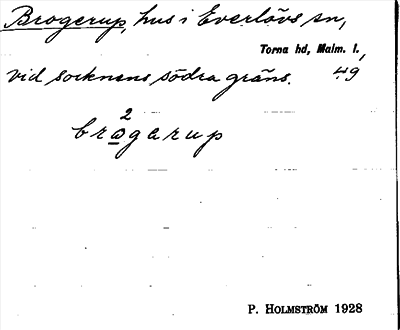 Brogerup, hus i Everlövs sn,
Torna hd, Malm. l.,
vid socknens södra gräns. 49
2
brogarup
P. HOLMSTRÖM 1928